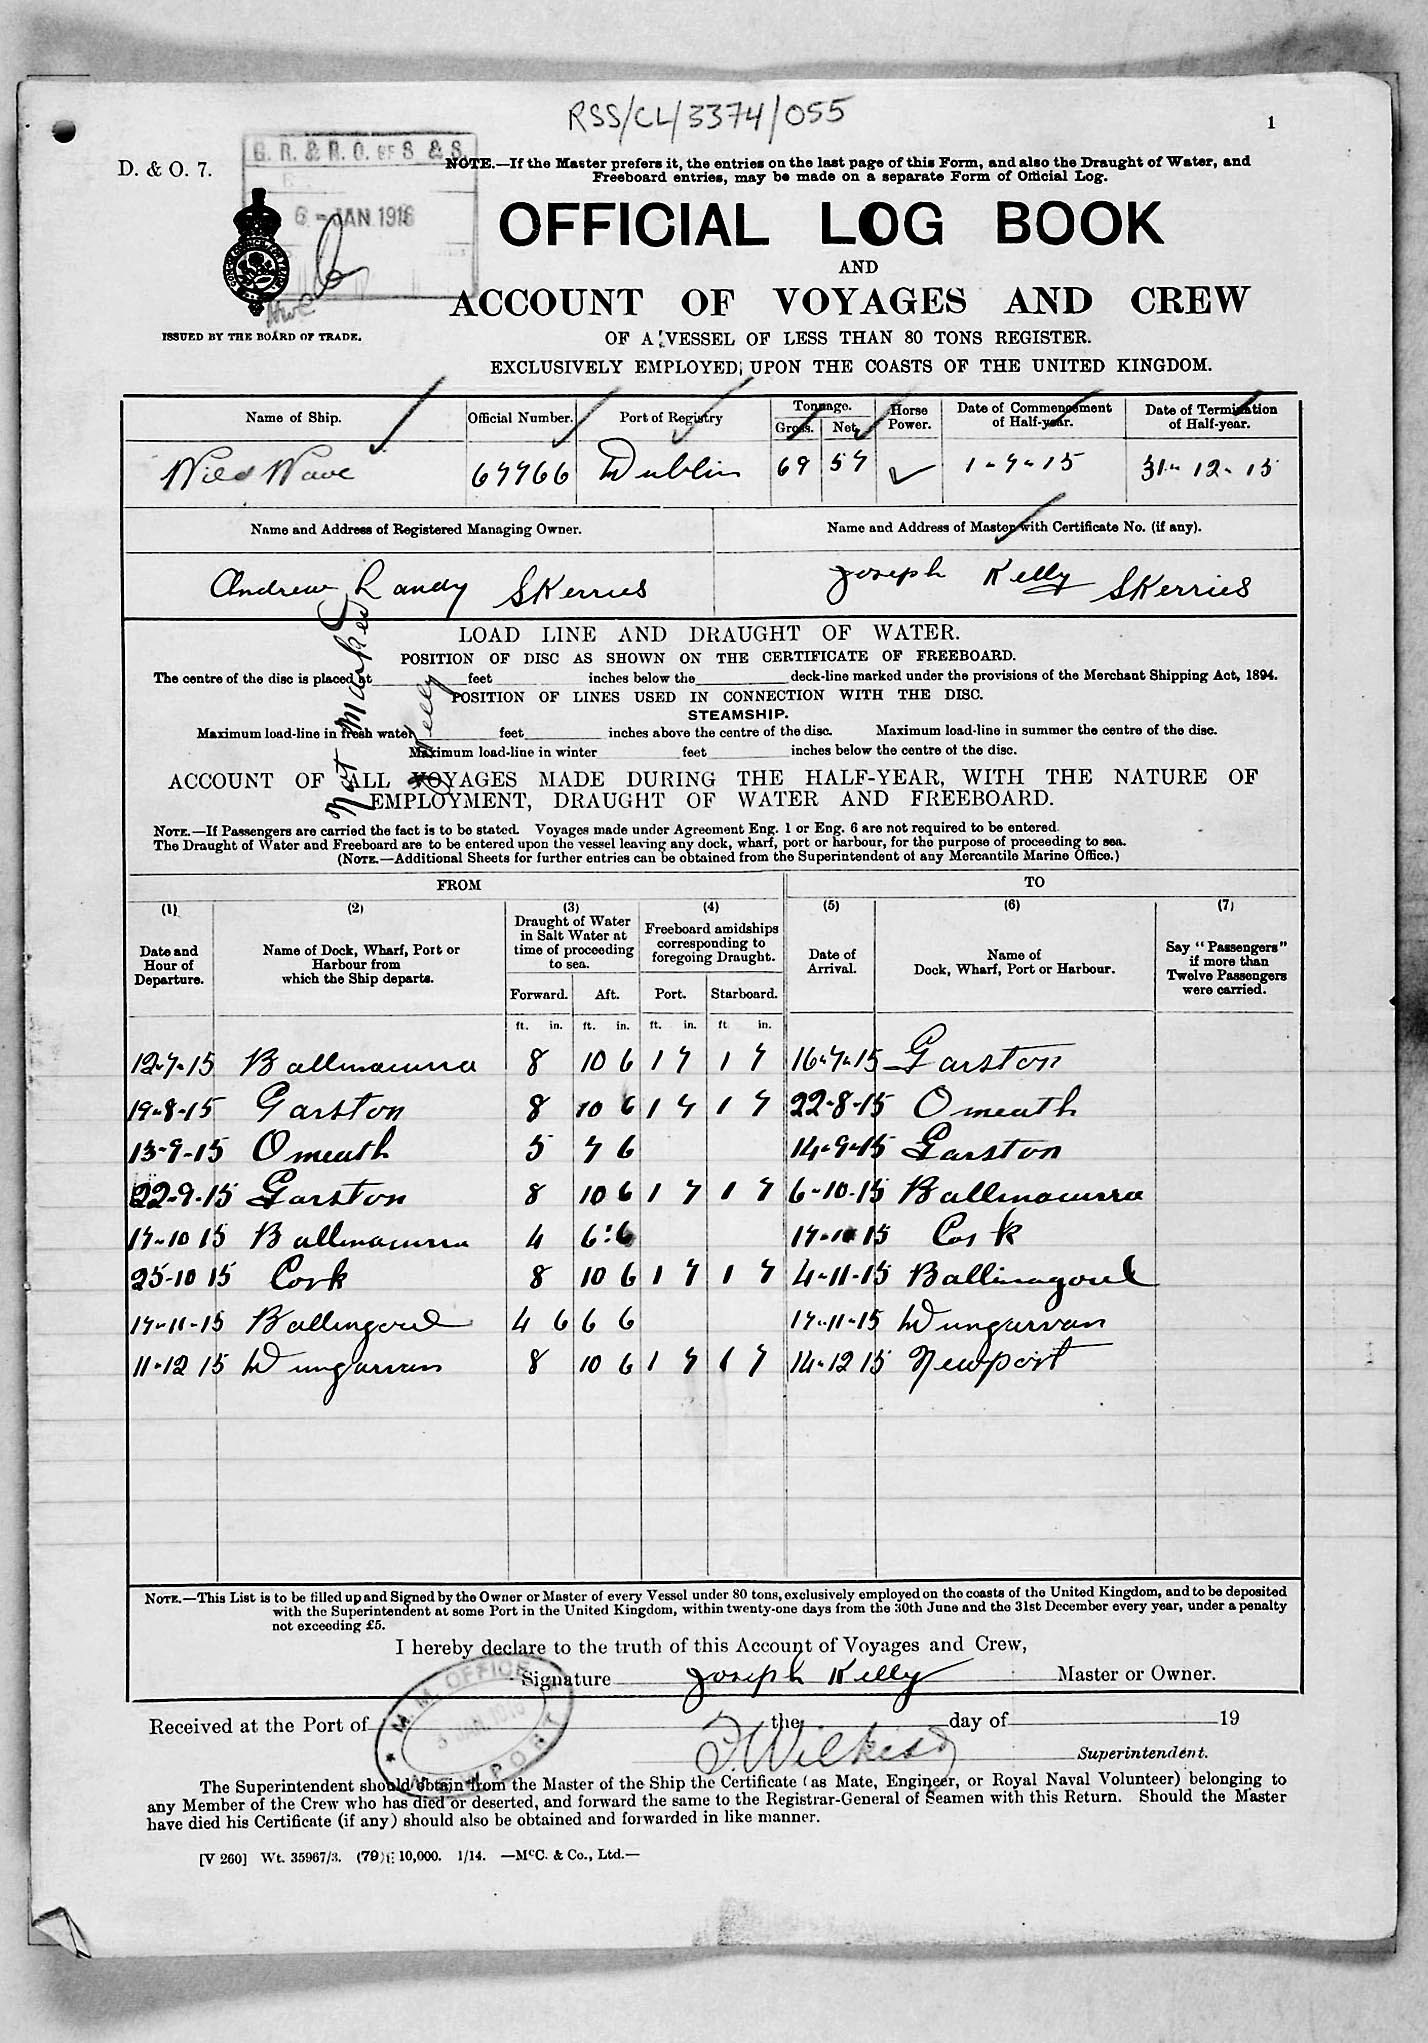 RSS/CL/3374/055
1
D. & O. 7.
G. R. & R. O. OF S & S.
6 - JAN 1916
NOTE.—If the Master prefers it, the entries on the last page of this Form, and also the Draught of Water, and
Freeboard entries, may be made on a separate Form of Official Log.
OFFICIAL LOG BOOK
AND
ACCOUNT OF VOYAGES AND CREW
ISSUED BY THE BOARD OF TRADE.
OF A VESSEL OF LESS THAN 80 TONS REGISTER.
EXCLUSIVELY EMPLOYED UPON THE COASTS OF THE UNITED KINGDOM.
Name of Ship. Official Number. Port of Registry Tonnage. Gross. Net. Horse Power. Date of Commencement of Half-year. Date of Termination of Half-year.
Wild Wave 67766 Dublin 69 57 1-7-15 31-12-15
Name and Address of Registered Managing Owner. Name and Address of Master with Certificate No. (if any).
Andrew Landy Skerries Joseph Kelly Skerries
Not Marked
Kelly
LOAD LINE AND DRAUGHT OF WATER.
POSITION OF DISC AS SHOWN ON THE CERTIFICATE OF FREEBOARD.
The centre of the disc is placed at feet inches below the deck-line marked under the provisions of the Merchant Shipping Act, 1894.
POSITION OF LINES USED IN CONNECTION WITH THE DISC.
STEAMSHIP.
Maximum load-line in fresh water feet inches above the centre of the disc. Maximum load-line in summer the centre of the disc.
Maximum load-line in winter feet inches below the centre of the disc.
ACCOUNT OF ALL VOYAGES MADE DURING THE HALF-YEAR, WITH THE NATURE OF
EMPLOYMENT, DRAUGHT OF WATER AND FREEBOARD.
NOTE.—If Passengers are carried the fact is to be stated. Voyages made under Agreement Eng. 1 or Eng. 6 are not required to be entered.
The Draught of Water and Freeboard are to be entered upon the vessel leaving any dock, wharf, port or harbour, for the purpose of proceeding to sea.
(NOTE.—Additional Sheets for further entries can be obtained from the Superintendent of any Mercantile Marine Office.)
FROM TO
(1) (2) (3) (4) (5) (6) (7)
Date and Hour of Departure. Name of Dock, Wharf, Port or Harbour from which the Ship departs. Draught of Water in Salt Water at time of proceeding to sea. Freeboard amidships corresponding to foregoing Draught. Date of Arrival. Name of Dock, Wharf, Port or Harbour. Say "Passengers" if more than Twelve Passengers were carried.
Forward. Aft. Port. Starboard.
ft. in. ft. in. ft. in. ft in.
12-7-15 Ballinacurra 8 10 6 1 7 1 7 16-7-15 Garston
19-8-15 Garston 8 10 6 1 7 1 7 22-8-15 Omeath
13-9-15 Omeath 5 7 6 14-9-15 Garston
22-9-15 Garston 8 10 6 1 7 1 7 6-10-15 Ballinacurra
17-10 15 Ballinacurra 4 6:6 17-10 15 Cork
25-10 15 Cork 8 10 6 1 7 1 7 4-11-15 Ballinagoul
17-11-15 Ballingoul 4 6 6 6 17-11-15 Dungarvan
11-12 15 Dungarvan 8 10 6 1 7 1 7 14-12 15 Newport
NOTE.—This List is to be filled up and Signed by the Owner or Master of every Vessel under 80 tons, exclusively employed on the coasts of the United Kingdom, and to be deposited
with the Superintendent at some Port in the United Kingdom, within twenty-one days from the 30th June and the 31st December every year, under a penalty
not exceeding £5.
I hereby declare to the truth of this Account of Voyages and Crew,
Signature Joseph Kelly Master or Owner.
M. M. OFFICE
3 JAN 1916
NEWPORT
Received at the Port of the day of 19
Superintendent.
The Superintendent should obtain from the Master of the Ship the Certificate (as Mate, Engineer, or Royal Naval Volunteer) belonging to
any Member of the Crew who has died or deserted, and forward the same to the Registrar-General of Seamen with this Return. Should the Master
have died his Certificate (if any) should also be obtained and forwarded in like manner.
[V 260] Wt. 35967/3. (79) 10,000. 1/14. —McC. & Co., Ltd.—